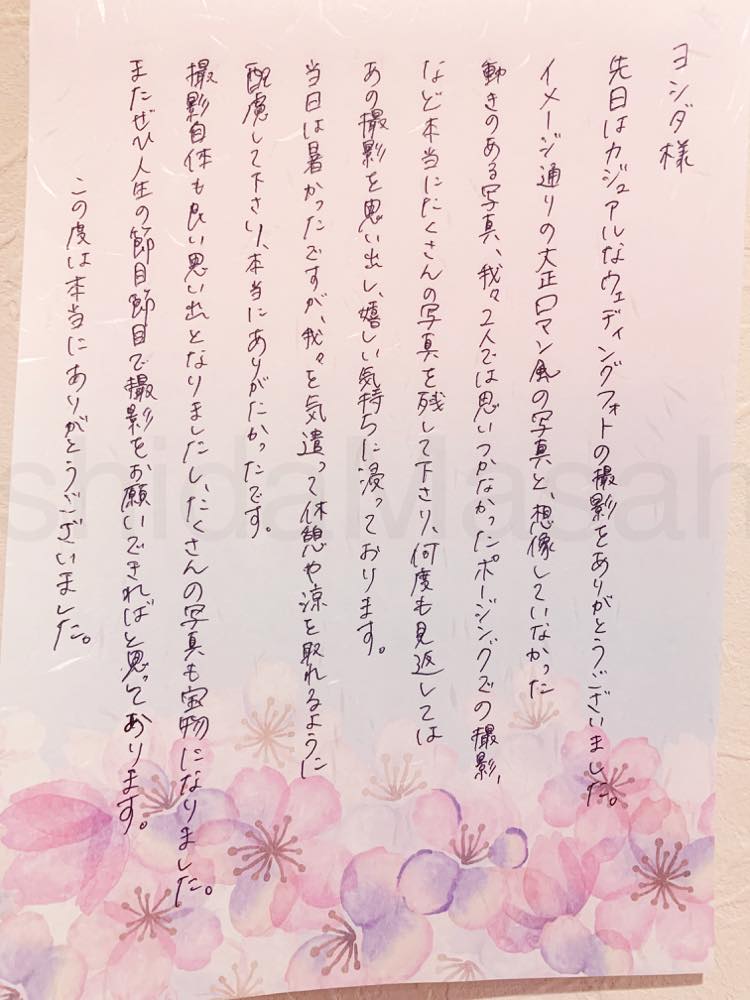 ヨシダ様
先日はカジュアルなウェディングフォトの撮影をありがとうございました。
イメージ通りの大正ロマン風の写真と、想像していなかった
動きのある写真、我々2人では思いつかなかったポージングでの撮影、
など本当にたくさんの写真を残して下さり、何度も見返しては
あの撮影を思い出し、嬉しい気持ちに浸っております。
当日は暑かったですが、我々を気遣って休憩や涼を取れるように
配慮して下さり、本当にありがたかったです。
撮影自体も良い思い出となりましたし、たくさんの写真も宝物になりました。
またぜひ人生の節目節目で撮影をお願いできればと思っております。
この度は本当にありがとうございました。
shidaMasah